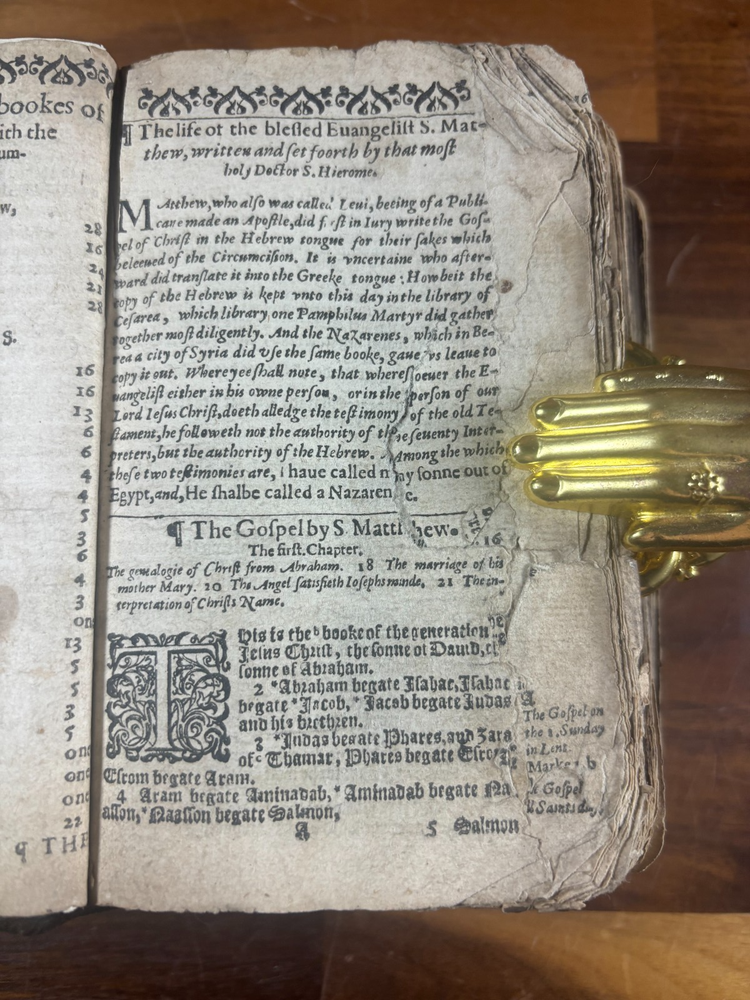 bookes of
ith the
um-
w,
28
16
24
21
28
S.
16
16
13
6
6
4
4
5
3
6
4
3
on
13
5
5
3
5
one
one
one
22
¶ THE
¶ The life of the blessed Euangelist S. Mat-
thew, written and set foorth by that most
holy Doctor S. Hierome.
Matthew, who also was called Leui, beeing of a Publi-
cane made an Apostle, did first in Iury write the Gos-
pel of Christ in the Hebrew tongue for their sakes which
beleeued of the Circumcision. It is vncertaine who after-
ward did translate it into the Greeke tongue: Howbeit the
copy of the Hebrew is kept vnto this day in the library of
Cesarea, which library one Pamphilus Martyr did gather
together most diligently. And the Nazarenes, which in Be-
rea a city of Syria did vse the same booke, gaue vs leaue to
copy it out. Where yee shall note, that wheresoeuer the E-
uangelist either in his owne person, or in the person of our
Lord Iesus Christ, doeth alledge the testimony of the old Te-
stament, he followeth not the authority of the seuenty Inter-
preters, but the authority of the Hebrew. Among the which
these two testimonies are, I haue called my sonne out of
Egypt, and, He shalbe called a Nazaren
¶ The Gospel by S. Matthew.
The first. Chapter.
16
The genealogie of Christ from Abraham. 18 The marriage of his
mother Mary. 20 The Angel satisfieth Iosephs minde. 21 The in-
terpretation of Christs Name.
This is the b booke of the generation
Jesus Christ, the sonne of Dauid,
sonne of Abraham.
2 *Abraham begate Isahac, Isahac
begate *Jacob, *Jacob begate Iudas
and his brethren.
3 *Iudas begate Phares, and Zara
of Thamar, Phares begate Esrom
Esrom begate Aram.
4 Aram begate Aminadab, *Aminadab begate Na
asson, *Naasson begate Salmon,
A
5 Salmon
A
The Gospel on
the 2. Sunday
in Lent.
Gospel